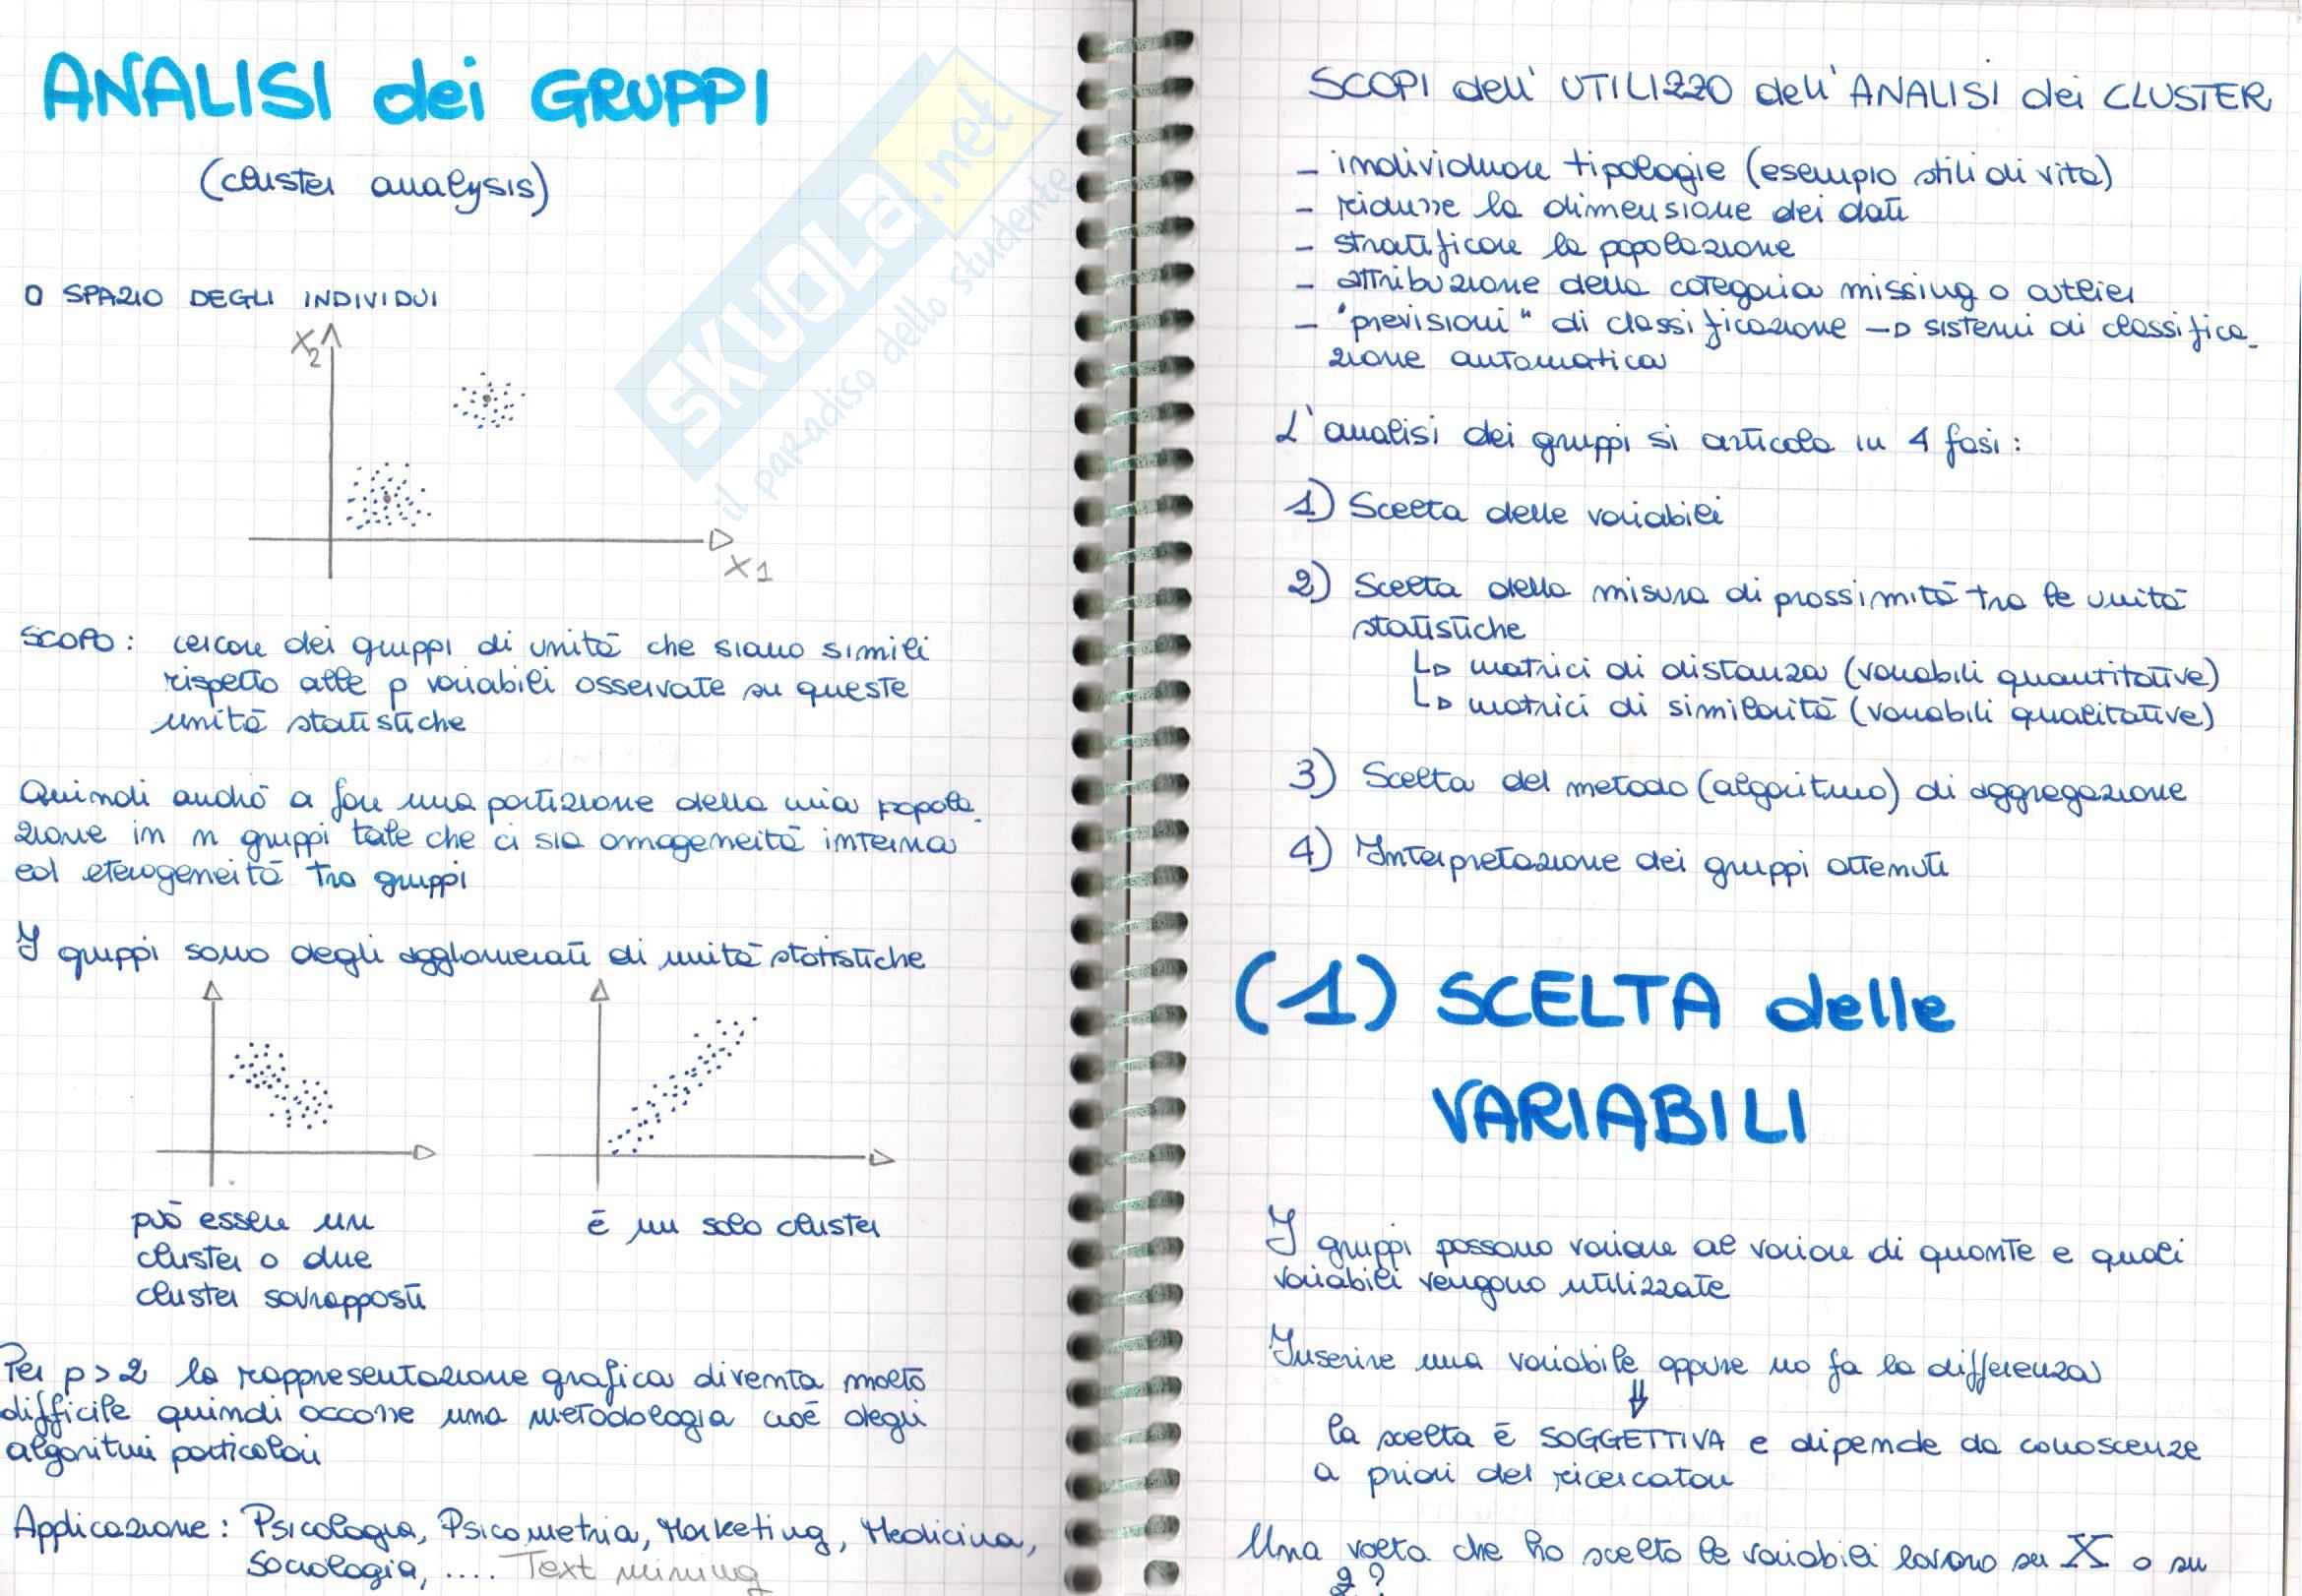 ANALISI dei GRUPPI
(cluster analysis)
SPAZIO DEGLI INDIVIDUI
X2
X1
SCOPO: cercare dei gruppi di unità che siano simili
rispetto alle p variabili osservate su queste
unità statistiche
Quindi andrò a fare una partizione della mia popola-
zione in n gruppi tale che ci sia omogeneità interna
ed eterogeneità tra gruppi
I gruppi sono degli agglomerati di unità statistiche
può essere un
cluster o due
cluster sovrapposti
è un solo cluster
Per p>2 la rappresentazione grafica diventa molto
difficile quindi occorre una metodologia cioè degli
algoritmi particolari
Applicazione: Psicologia, Psicometria, Marketing, Medicina,
Sociologia, .... Text mining
SKUOLA.net
il paradiso dello studente
SCOPI dell'UTILIZZO dell'ANALISI dei CLUSTER
- individuare tipologie (esempio stili di vita)
- ridurre la dimensione dei dati
- stratificare la popolazione
- attribuzione della categoria missing o outlier
- "previsioni" di classificazione → sistemi di classifica-
zione automatica
L'analisi dei gruppi si articola in 4 fasi:
1) Scelta delle variabili
2) Scelta della misura di prossimità tra le unità
statistiche
↳ matrici di distanza (variabili quantitative)
↳ matrici di similarità (variabili qualitative)
3) Scelta del metodo (algoritmo) di aggregazione
4) Interpretazione dei gruppi ottenuti
(1) SCELTA delle
VARIABILI
I gruppi possono variare al variare di quante e quali
variabili vengono utilizzate
Inserire una variabile oppure no fa la differenza
⇓
la scelta è SOGGETTIVA e dipende da conoscenze
a priori del ricercatore
Una volta che ho scelto le variabili lavoro su X o su
Z?